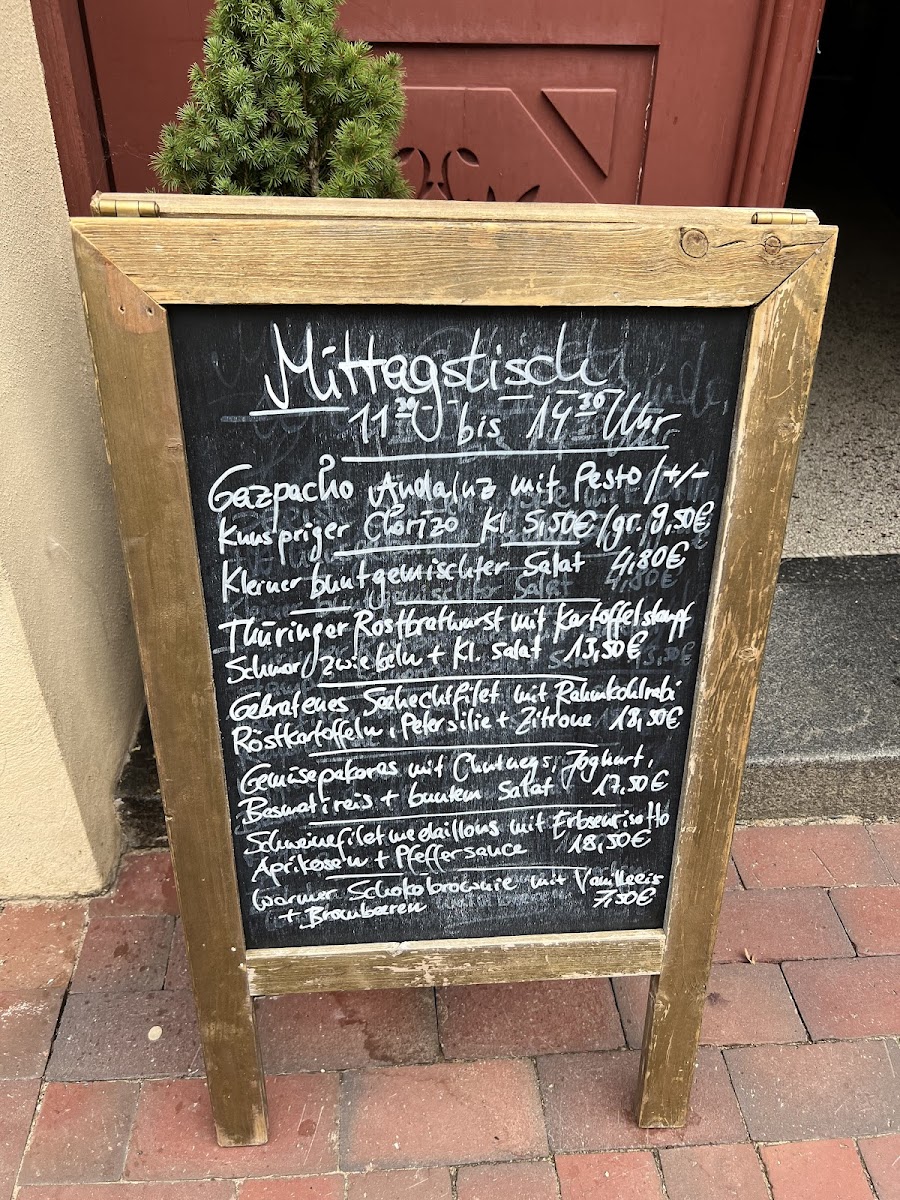 Mittagstisch
11³⁰ bis 14³⁰ Uhr
Gazpacho Andaluz mit Pesto/+/-
Knuspriger Chorizo Kl. 5,50€/gr. 9,50€
Kleiner buntgemischter Salat 4,80€
Thüringer Rostbratwurst mit Kartoffelstampf
Schmorzwiebeln + Kl. Salat 13,50€
Gebratenes Seehechtfilet mit Rahmkohlrabi
Röstkartoffeln, Petersilie + Zitrone 18,50€
Gemüsepakoras mit Chutneys, Joghurt,
Basmatireis + buntem Salat 17,50€
Schweinefiletmedaillons mit Erbsenrisotto
Aprikosen + Pfeffersauce 18,50€
Warmer Schokobrownie mit Vanilleeis
+ Brombeeren 7,50€